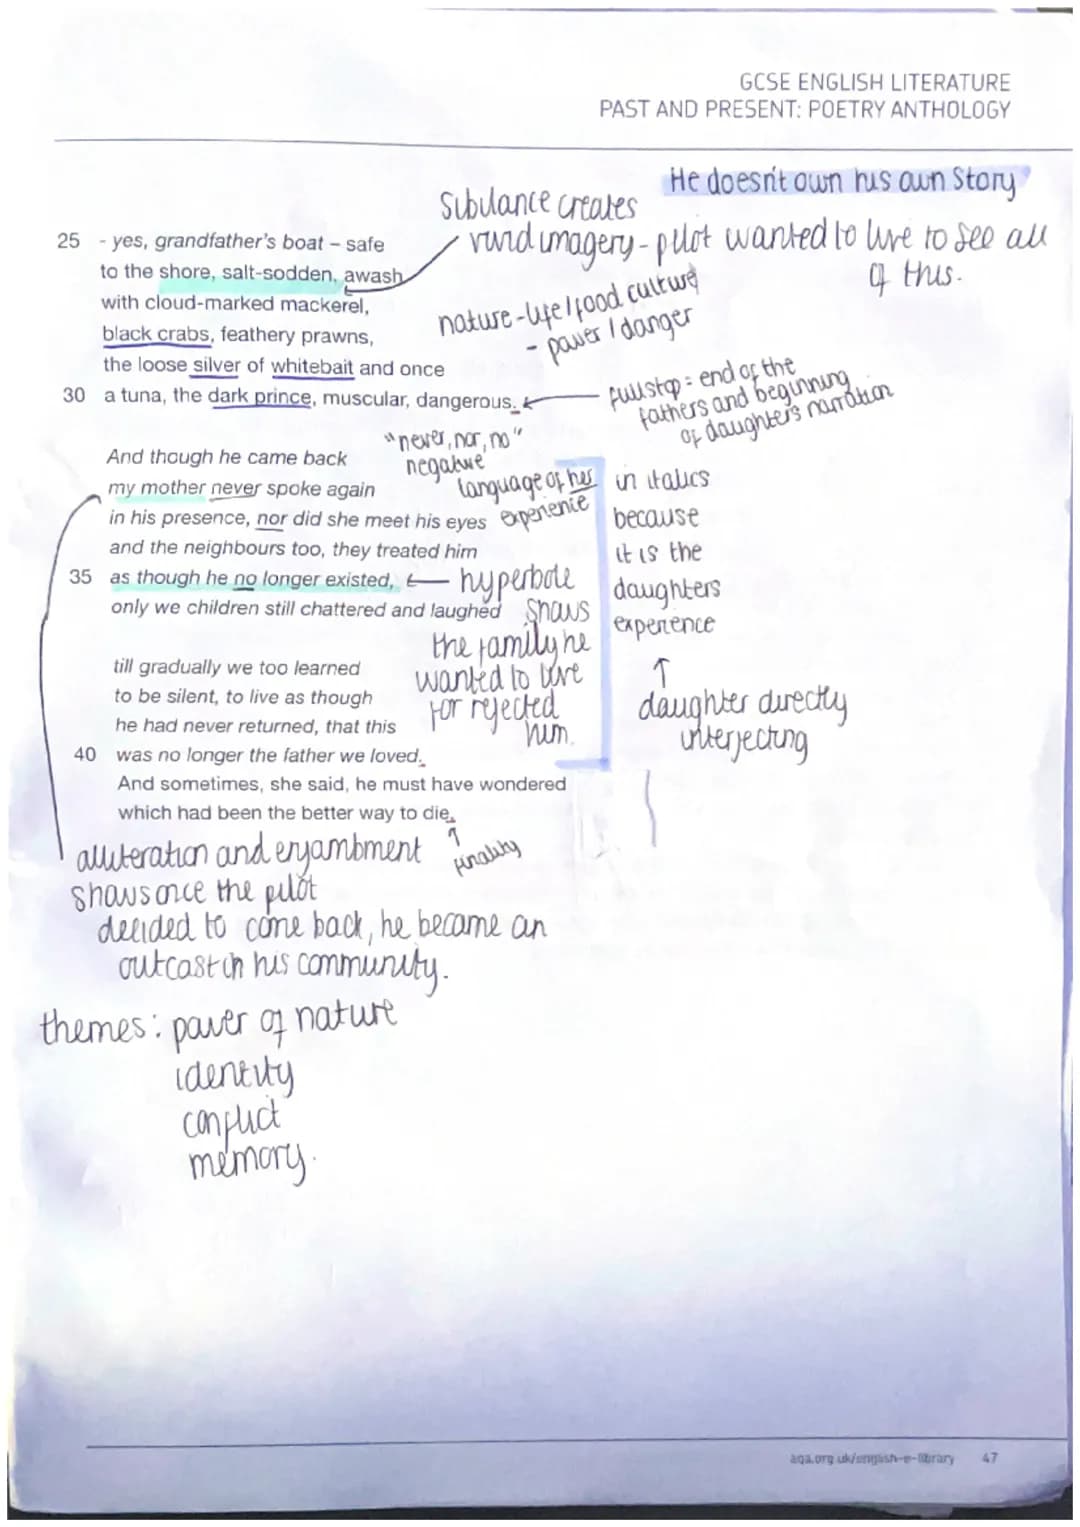 GCSE ENGLISH LITERATURE
PAST AND PRESENT: POETRY ANTHOLOGY
He doesn't own his own Story
Sibilance creates
vivid imagery - pilot wanted to live to see all
of this.
25 - yes, grandfather's boat – safe
to the shore, salt-sodden, awash
with cloud-marked mackerel,
black crabs, feathery prawns,
the loose silver of whitebait and once
30 a tuna, the dark prince, muscular, dangerous.
nature - life / food culture
- power / danger
fullstop = end of the
fathers and beginning
of daughters narration
"never, nor, no"
negative
language of her
experience
And though he came back
my mother never spoke again
in his presence, nor did she meet his eyes
and the neighbours too, they treated him
35 as though he no longer existed,
only we children still chattered and laughed
in italics
because
it is the
daughters
experience
↑
daughter directly
interjecting
hyperbole
shows
the family he
wanted to live
for rejected
him.
till gradually we too learned
to be silent, to live as though
he had never returned, that this
40 was no longer the father we loved.
And sometimes, she said, he must have wondered
which had been the better way to die.
↑
finality
alliteration and enjambment
shows once the pilot
decided to come back, he became an
outcast in his community.
themes: power of nature
identity
conflict
memory.
aqa.org.uk/english-e-library 47